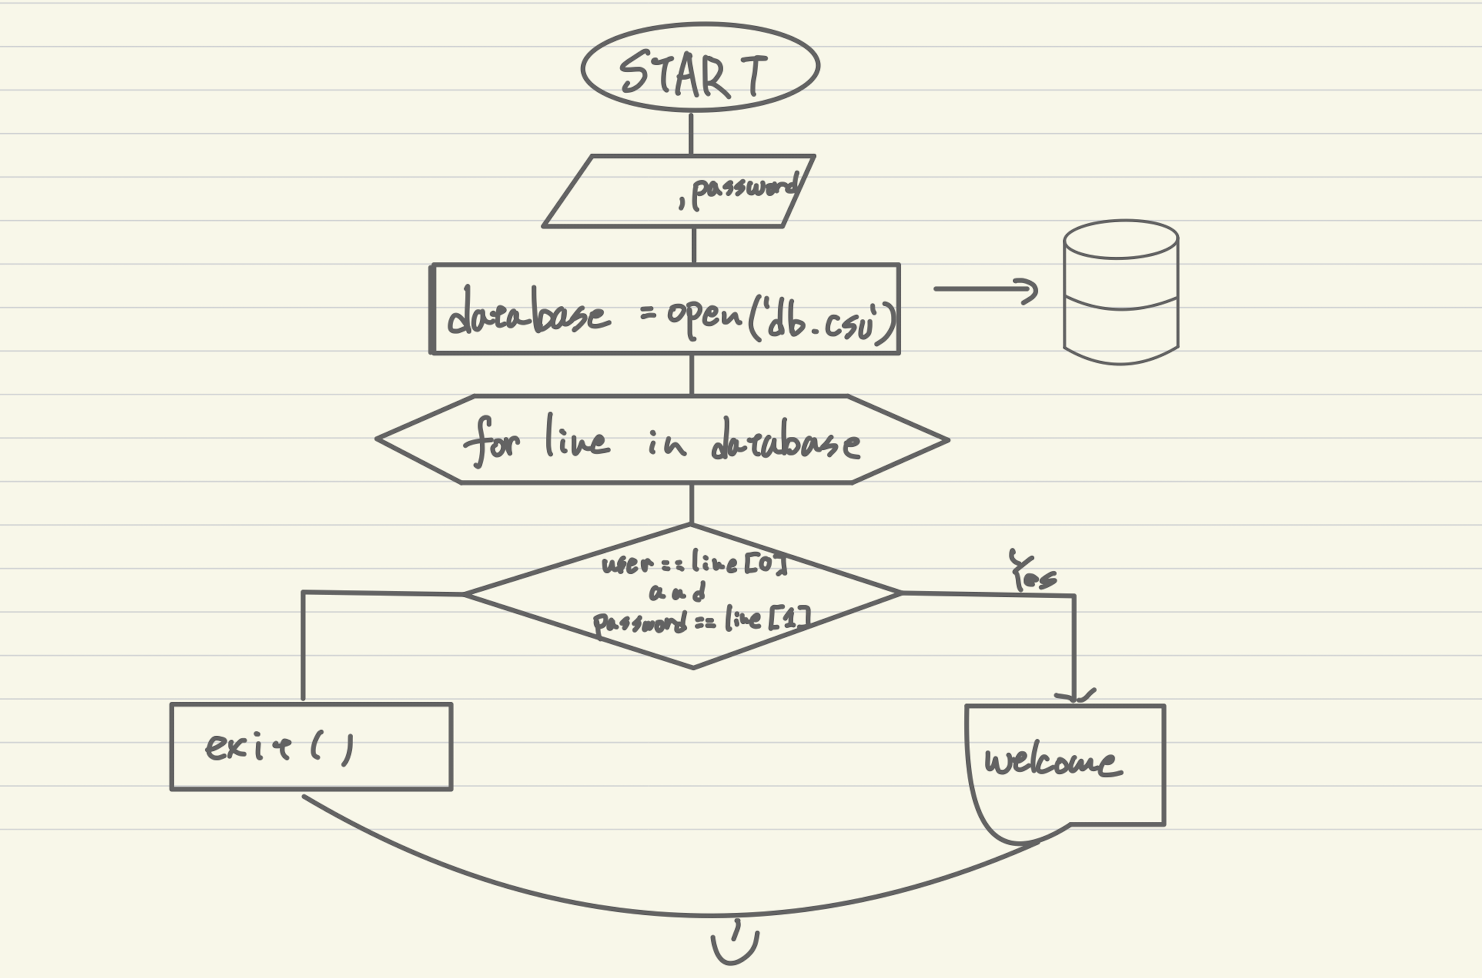 START
,password
database = open('db.csv')
for line in database
user == line[0]
and
password == line[1]
Yes
exit()
welcome